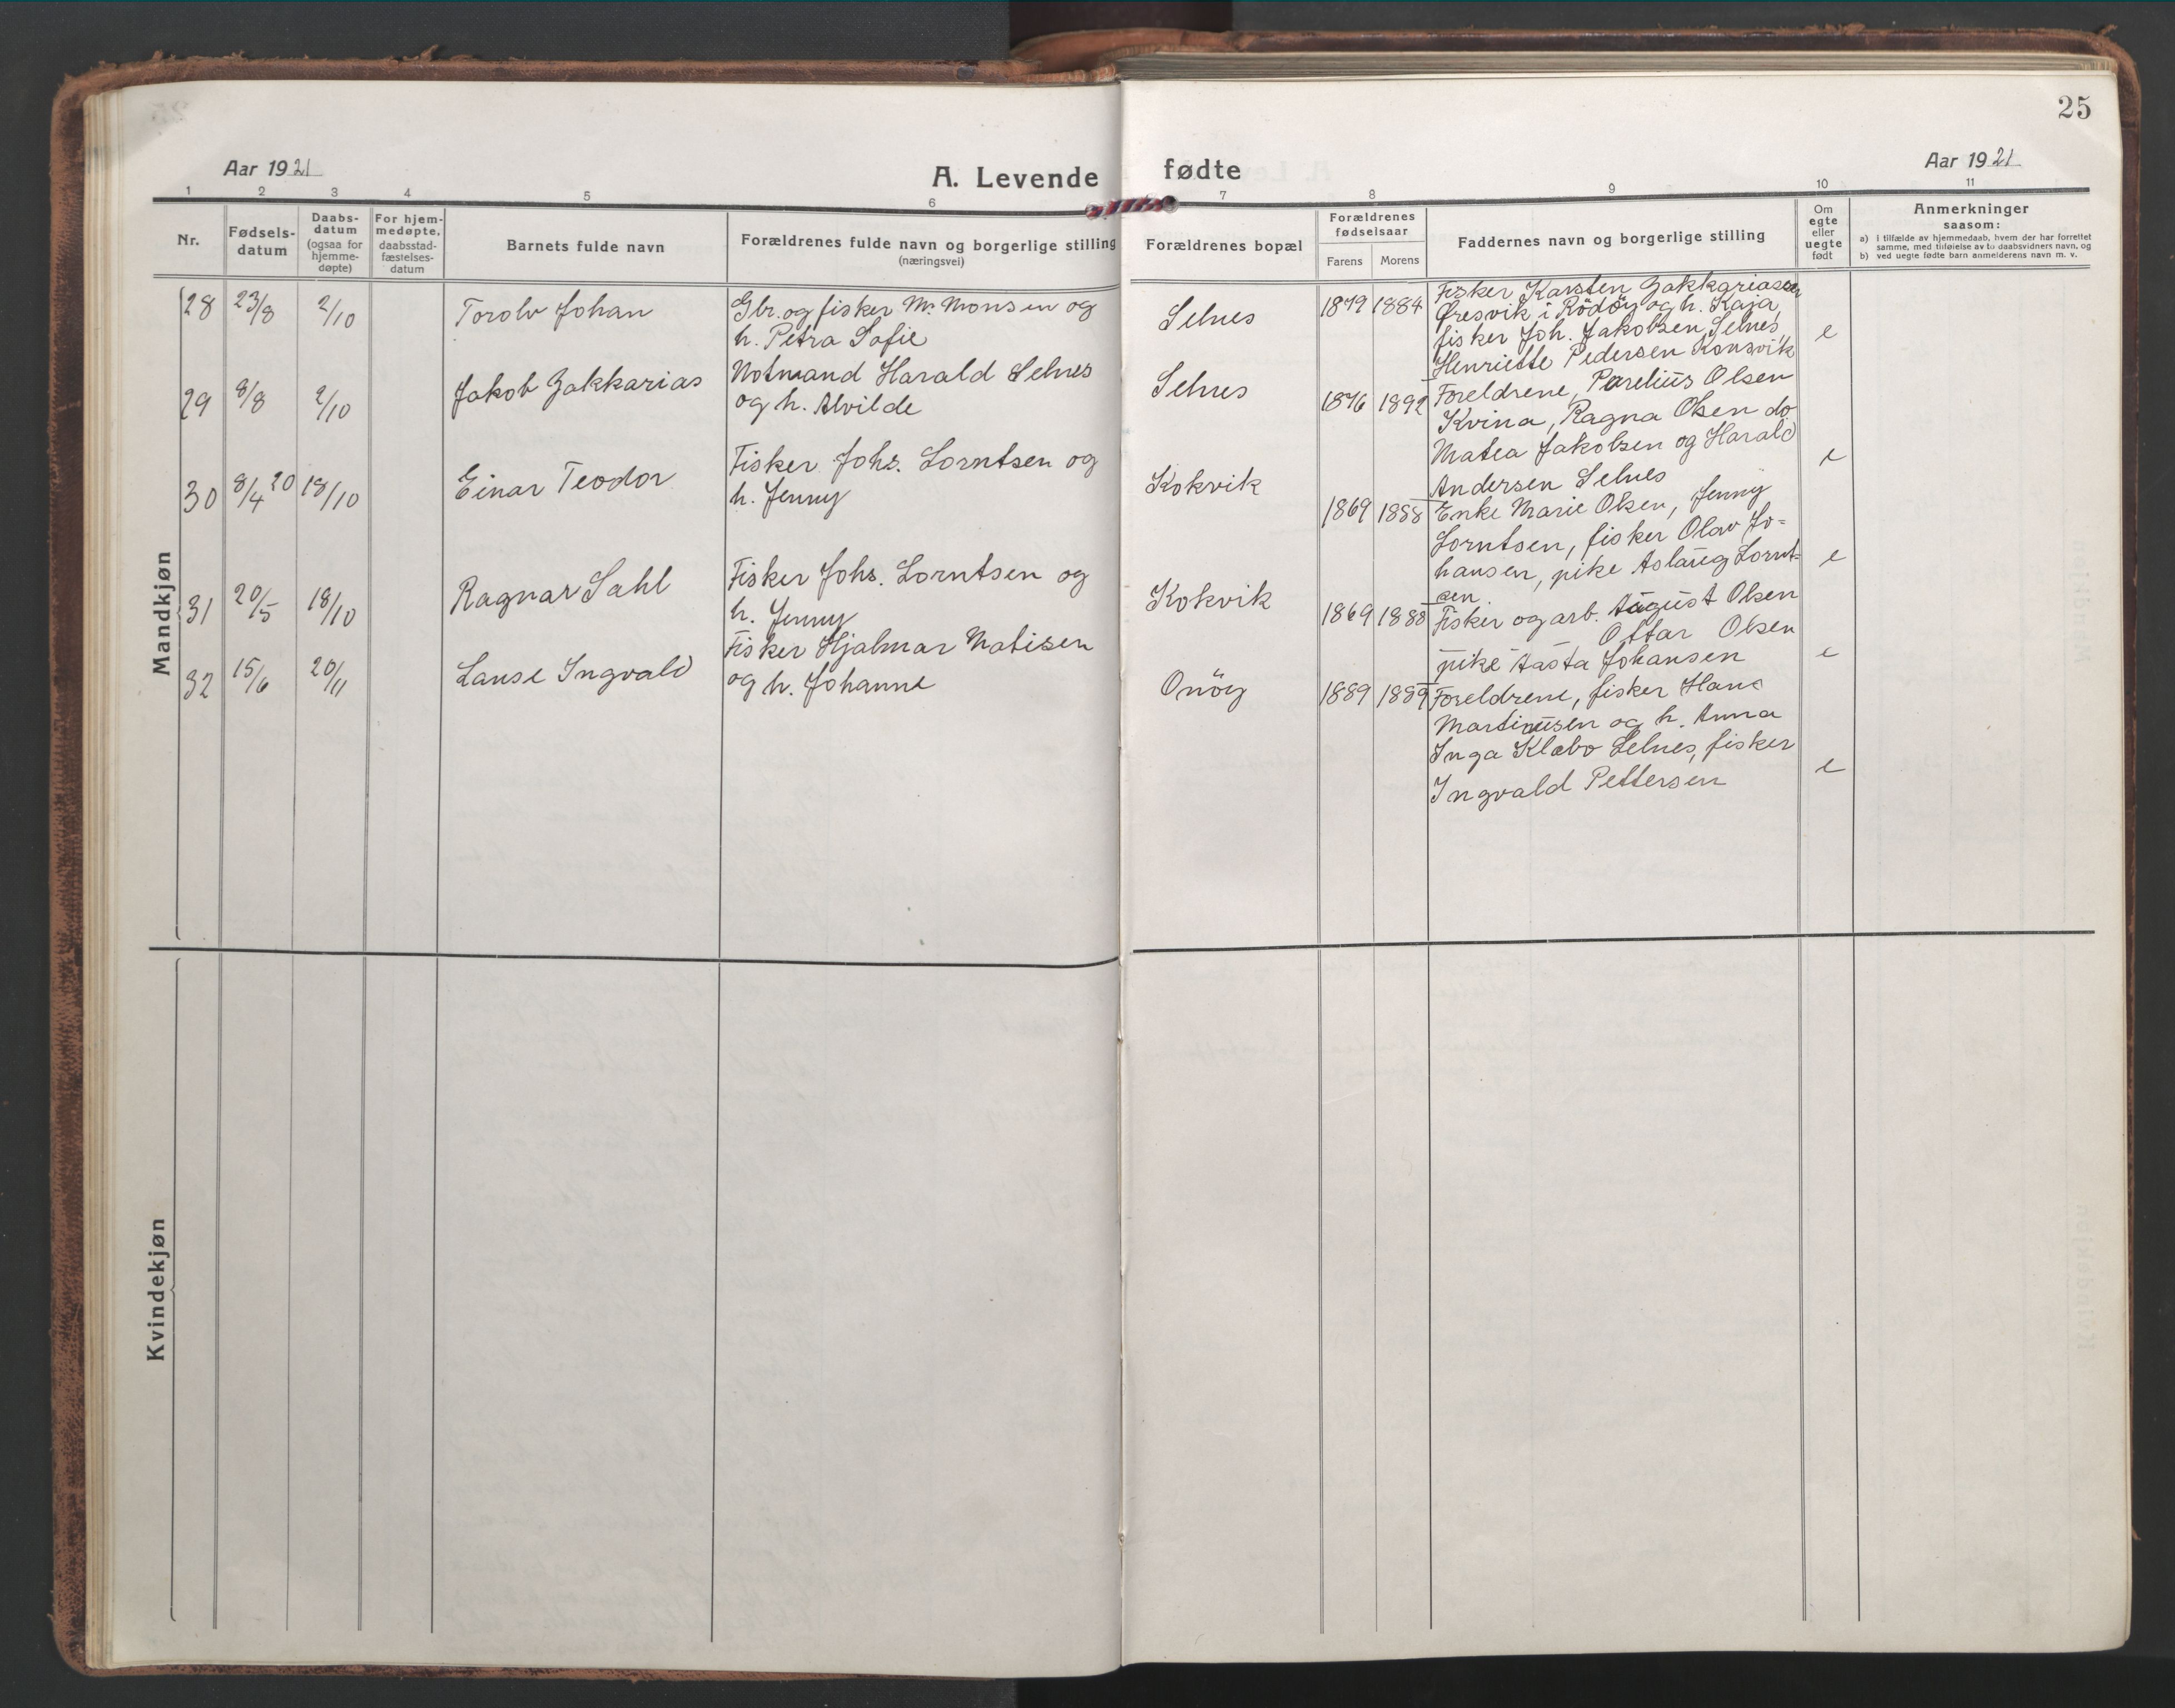 25
Aar 1921
A. Levende fødte
Aar 1921
1 2 3 4 5 6 7 8 9 10 11
Nr.
Fødsels-
datum
Daabs-
datum
(ogsaa for
hjemme-
døpte)
For hjem-
medøpte,
daabsstad-
fæstelses-
datum
Barnets fulde navn
Forældrenes fulde navn og borgerlige stilling
(næringsvei)
Forældrenes bopæl
Forældrenes
fødselsaar
Farens Morens
Faddernes navn og borgerlige stilling
Om
egte
eller
uegte
født
Anmerkninger
saasom:
a) i tilfælde av hjemmedaab, hvem der har forrettet
samme, med tilføielse av to daabsvidners navn, og
b) ved uegte fødte barn anmelderens navn m. v.
Mandkjøn
28 23/8 2/10 Torolv Johan
Gbr. og fisker M. Monsen og
h. Petra Sofie
Selnes 1879 1884
Fisker Karsten Zakkariassen
Øresvik i Rödöy og h. Kaja,
fisker Joh. Jakobsen, Selnes,
Henriette Pedersen Konsvik
e
29 8/8 2/10 Jakob Zakkarias
Notmand Harald Selnes
og h. Alvilde
Selnes 1876 1892
Foreldrene, Parelius Olsen
Kvina, Ragna Olsen do.
Matea Jakobsen og Harald
Andersen Selnes
e
30 8/4 20 18/10 Einar Teodor
Fisker Johs. Lorntsen og
h. Jenny
Kokvik 1869 1888
Enke Marie Olsen, Jenny
Lorntsen, fisker Olav Jo-
hansen, pike Aslaug Lornt-
sen
e
31 20/5 18/10 Ragnar Dahl
Fisker Johs. Lorntsen og
h. Jenny
Kokvik 1869 1888
Fisker og arb. August Olsen
Ottar Olsen
pike Aasta Johansen
e
32 15/6 20/11 Lause Ingvald
Fisker Hjalmar Matisen
og h. Johanne
Onöy 1889 1889
Foreldrene, fisker Hans
Martinusen og h. Anna
Inga Klæbo Selnes, fisker
Ingvald Pettersen
e
Kvindekjøn